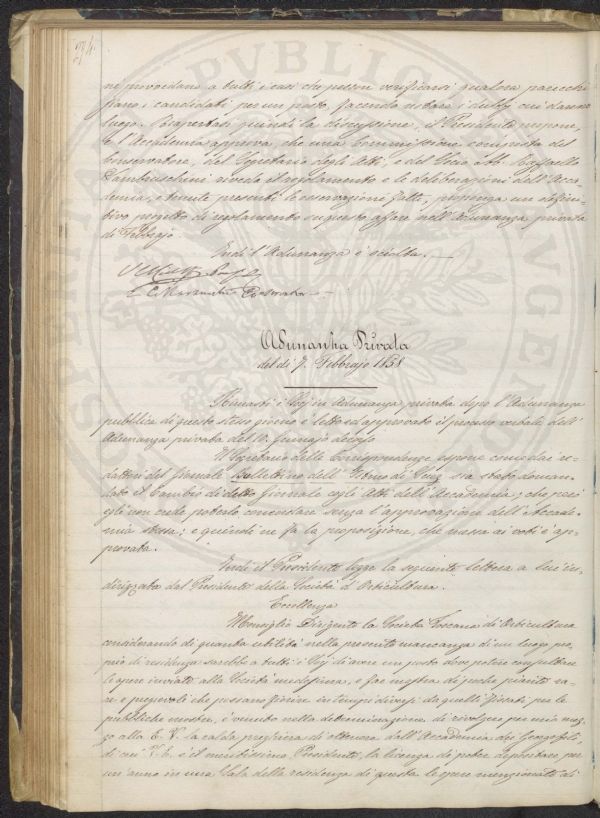 274.
ni provvedano a tutti i casi che possono verificarsi qualora parecchi
siano i candidati per un posto, facendo notare i dubbj cui danno
luogo. Riapertasi quindi la discussione, il Presidente propone,
e l'Accademia approva, che una Commissione composta del
Conservatore, del Segretario degli Atti, e del Socio Ab. Raffaello
Lambruschini riveda il regolamento e le deliberazioni dell'Acca-
demia, e tenute presenti le osservazioni fatte, proponga un defini-
tivo progetto di regolamento su questo affare nell'Adunanza privata
di Febbrajo.
Indi l'Adunanza è sciolta.
Adunanza Privata
del dì 7. Febbrajo 1858
Rimasti i Socj in Adunanza privata dopo l'Adunanza
pubblica di questo stesso giorno è letto ed approvato il processo verbale dell'
Adunanza privata del 10. Gennajo decorso
Il Segretario delle Corrispondenze espone come dai re-
dattori del Giornale Bollettino dell'Istmo di Suez sia stato doman-
dato il Cambio di detto Giornale cogli Atti dell'Accademia; che però
egli non crede poterlo concordare senza l'approvazione dell'Accade-
mia stessa; e quindi ne fa la proposizione, che messa ai voti è ap-
provata.
Indi il Presidente legge la seguente lettera a lui in-
dirizzata dal Presidente della Società d'Orticultura.
Eccellenza
Il Consiglio Dirigente la Società Toscana di Orticultura
considerando di quanta utilità nella presente mancanza di un luogo pro-
prio di residenza sarebbe a tutti i Socj di avere un posto dove potere consultare
le opere inviate alla Società medesima, e far mostra di poche piante ra-
re e pregevoli che possano fiorire in tempi diversi da quelli fissati per le
pubbliche mostre, è venuto nella determinazione di rivolgere per mio mez-
zo alla E. V. la calda preghiera di ottenere dall'Accademia dei Georgofili,
di cui V. E. è il meritissimo Presidente, la licenza di poter depositare per
un anno in una Sala della residenza di questa le opere menzionate di